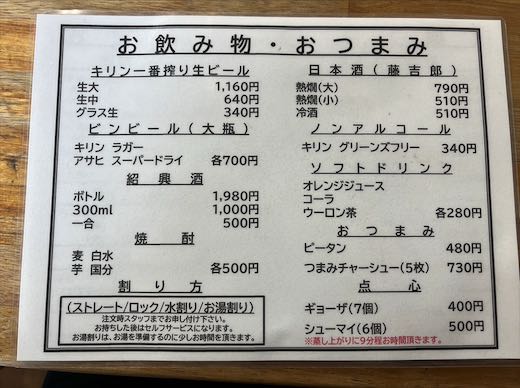 お飲み物・おつまみ
キリン一番搾り生ビール
生大 1,160円
生中 640円
グラス生 340円
ビンビール(大瓶)
キリン ラガー
アサヒ スーパードライ 各700円
紹興酒
ボトル 1,980円
300ml 1,000円
一合 500円
焼酎
麦 白水
芋 国分 各500円
割り方
(ストレート/ロック/水割り/お湯割り)
注文時スタッフまでお申し付け下さい。
お持ちした後はセルフサービスになります。
お湯割りは、お湯を準備するのに少しお時間を頂きます。
日本酒(藤吉郎)
熱燗(大) 790円
熱燗(小) 510円
冷酒 510円
ノンアルコール
キリン グリーンズフリー 340円
ソフトドリンク
オレンジジュース
コーラ
ウーロン茶 各280円
おつまみ
ピータン 480円
つまみチャーシュー(5枚) 730円
点心
ギョーザ(7個) 400円
シューマイ(6個) 500円
※蒸し上がりに9分程お時間頂きます。